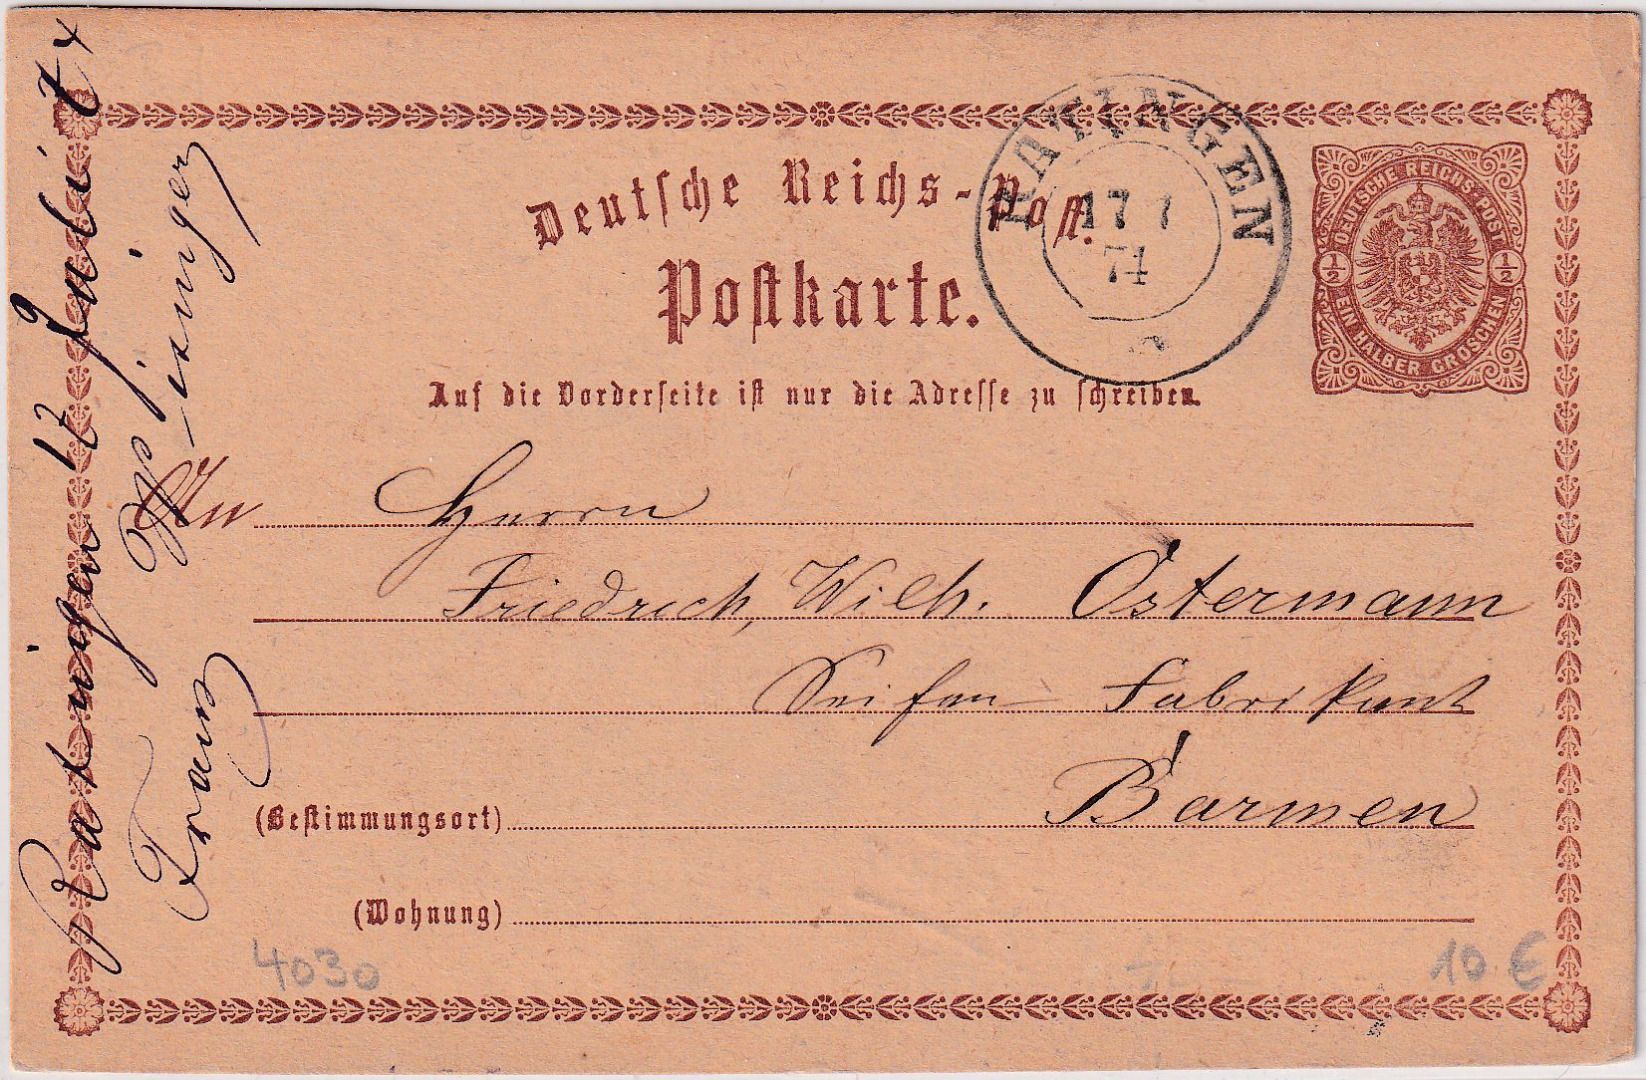 Deutsche Reichs-Post.
Postkarte.
Auf die Vorderseite ist nur die Adresse zu schreiben.
RATINGEN
17 7
74
DEUTSCHE REICHS-POST
1/2 1/2
EIN HALBER GROSCHEN
An Herrn
Friedrich, Wilh. Ostermann
Seifen Fabrikant
(Bestimmungsort) Barmen
(Wohnung)
Ratingen 17
Franz
4030
10 €